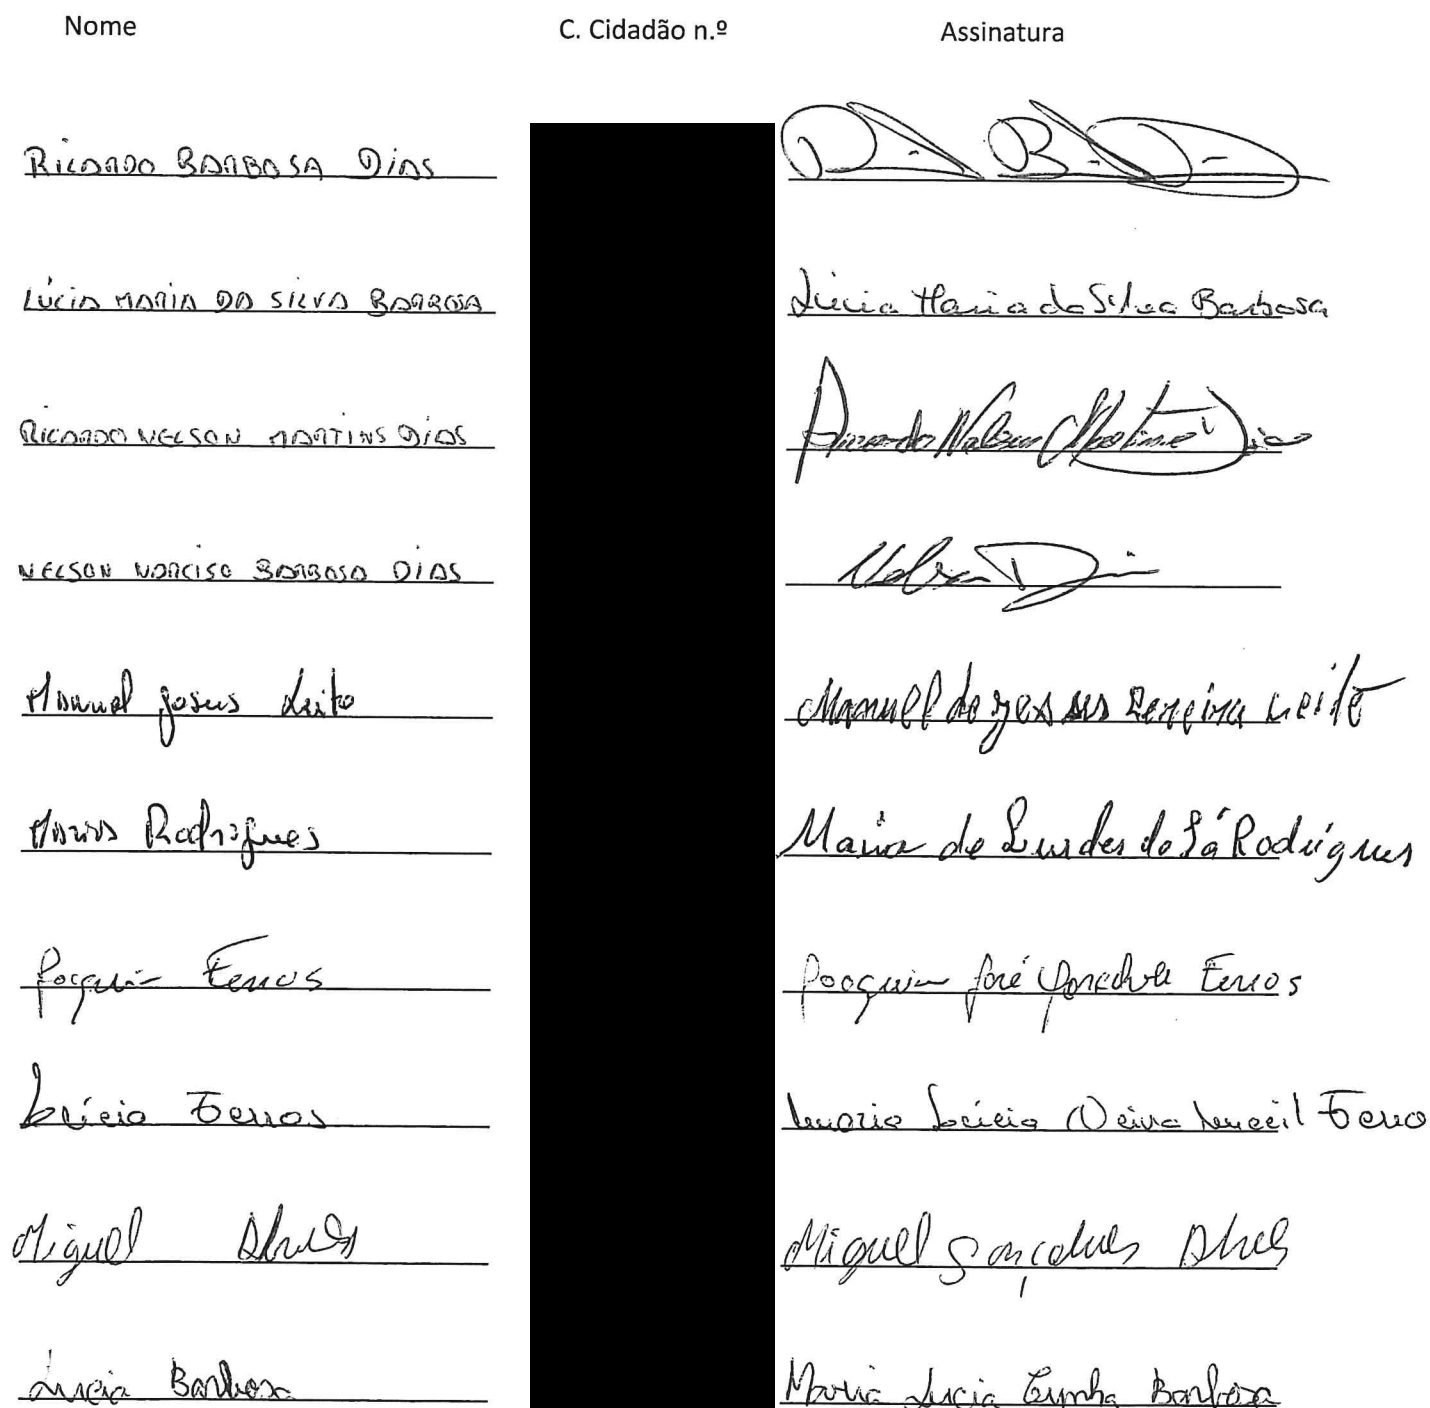 Nome C. Cidadão n.º Assinatura
RICARDO BARBOSA DIAS
LÚCIA MARIA DA SILVA BARBOSA Lúcia Maria da Silva Barbosa
RICARDO NELSON MARTINS DIAS Ricardo Nelson Martins Dias
NELSON NARCISO BARBOSA DIAS Nelson Dias
Manuel Jesus Leite Manuel de Jessus Pereira Leite
Maria Rodrigues Maria de Lurdes de Sá Rodrigues
Joaquim Ferros Joaquim José Gonçalves Ferros
Lúcia Ferros Maria Lúcia Neiva Ferro
Miguel Alves Miguel Gonçalves Alves
Lucia Barbosa Maria Lucia Cunha Barbosa